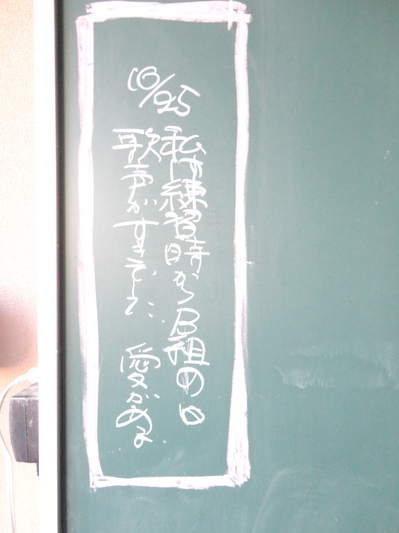 10/25
私は練習時からB組の
歌声がすきでした。愛がある